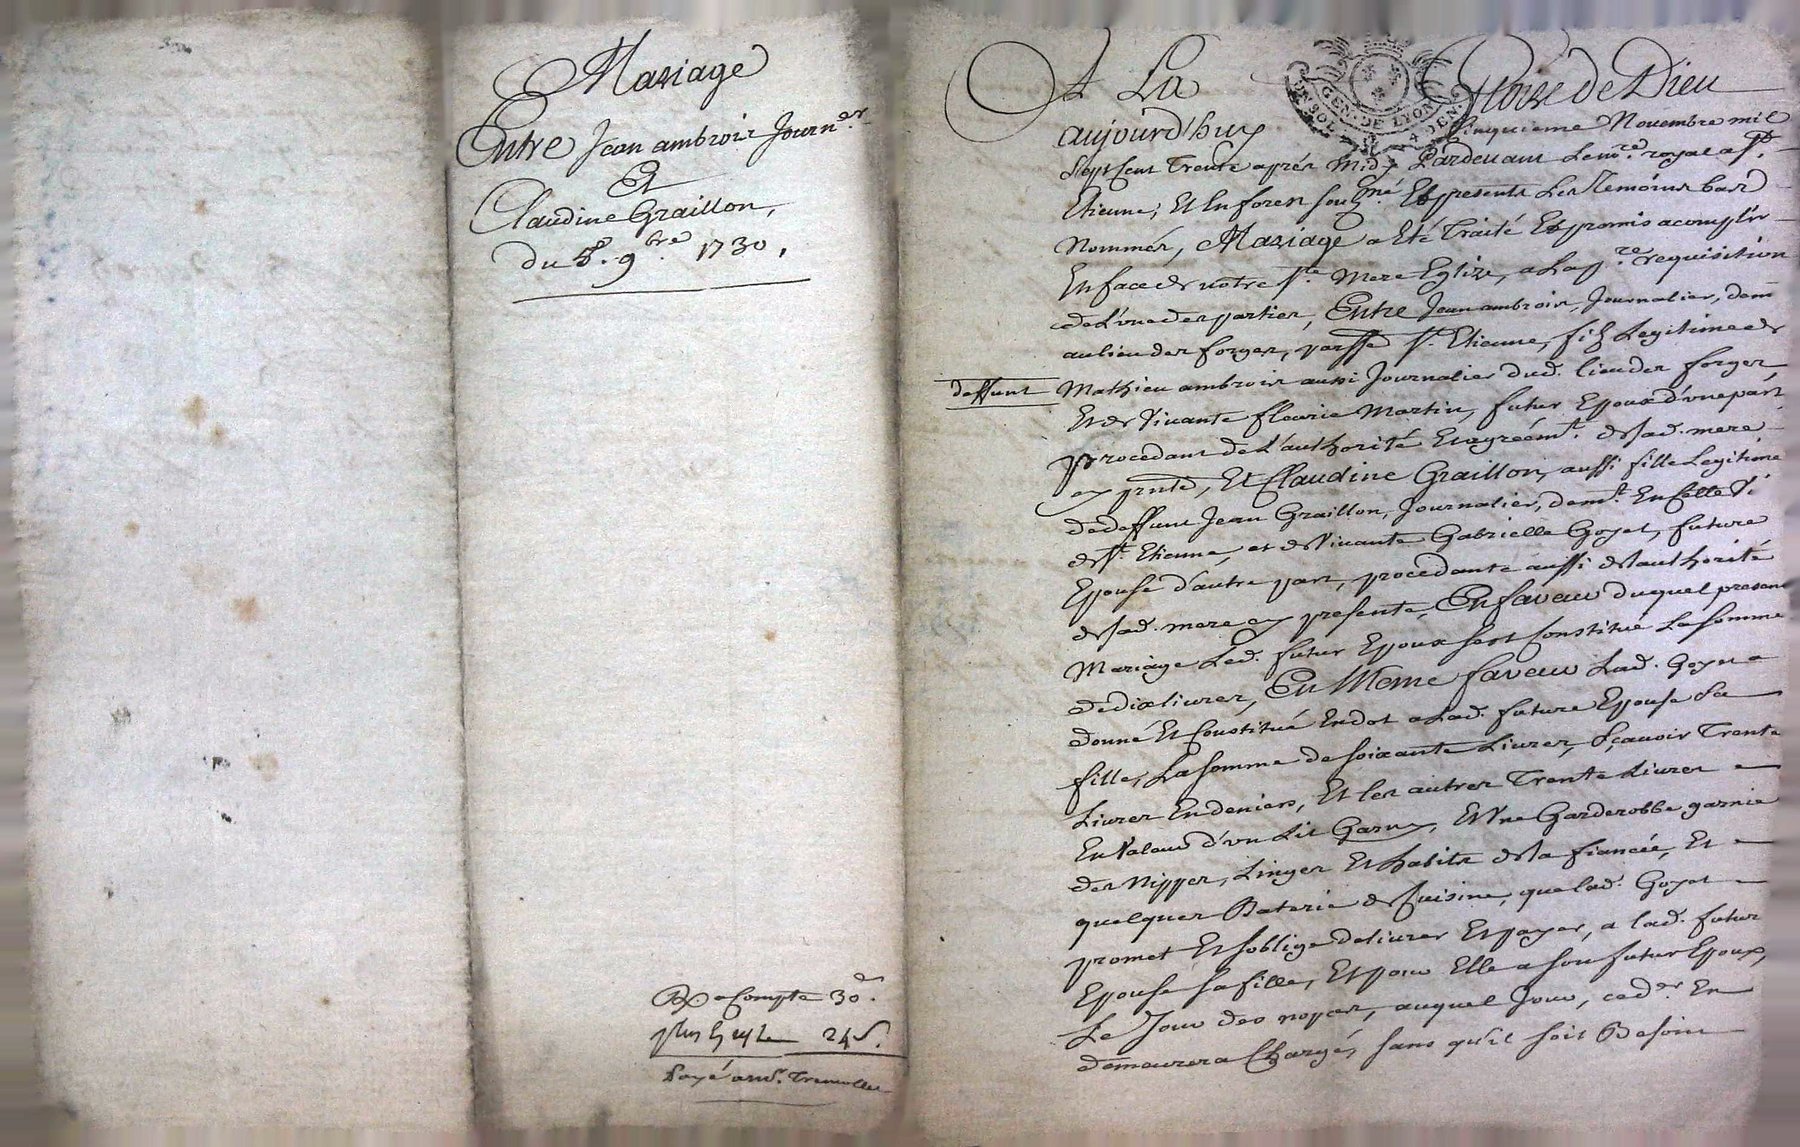 Mariage
Entre Jean ambrois Journer
Et
Claudine Graillon,
du 5e. 9bre. 1730.
a Compte 30s.
plus 24s.
Payé
A La Gloire de Dieu
GEN. DE LYON
4 DEN.
aujourd'huy Cinquieme Novembre mil
Sept Cent Trente aprés Midy Pardevant Le nre. royal a St.
Etienne, Et En forez sousné. Et presents Les Temoins bas
Nommés, Mariage a Eté Traité Et promis acomplir
En face de notre Ste. Mere Eglize, a La pre. requisition
de L'une des parties, Entre Jean ambrois, Journalier, demt
au lieu des forges, parsse St. Etienne, fils Legitime de
deffunt Mathieu ambrois aussi Journalier dud. lieu des forges
Et de Vivante fleurie Martin, futur Epoux d'une part
procedant de L'authorité Et agréemt. de sad. mere
cy pnte, Et Claudine Graillon, aussi fille Legitime
de deffunt Jean Graillon, Journalier, demt. En Cette Vi.
de St. Etienne, et de Vivante Gabrielle Goyet, future
Epouse d'autre part, procedante aussi de l'authorité
de sad. mere cy presente, En faveur duquel present
Mariage Led. futur Epoux sest Constitué La somme
de dix livres, En Meme faveur Lad. Goyet a
donné Et Constitué En dot a Lad. future Epouse Sa
fille, La somme de soixante Livres, Sçavoir Trente
Livres En deniers, Et les autres Trente Livres
En Valeur d'un Lit Garny, Et Vne Garderobbe garnie
des Nippes, Linges Et habits de la fiancée, Et
quelques Baterie de Cuisine, que lad. Goyet
promet Et soblige delivrer Et payer, a lad. futur
Epouse sa fille, Et pour Elle a son futur Epoux,
Le Jour des nopces, auquel Jour, ced. der En
demeurera Chargé, sans qu'il soit Besoin